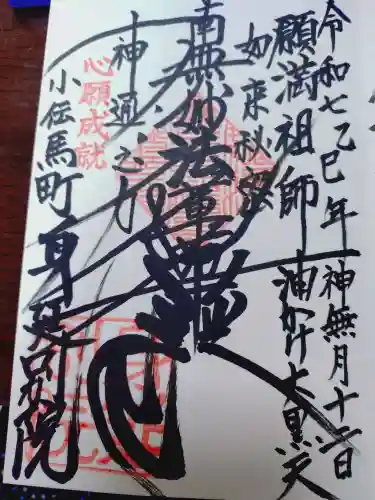 令和七乙巳年 神無月十二日
願満祖師 油かけ大黒天
如来秘密
南無妙法蓮華経
神通之力
心願成就
小伝馬町 身延別院